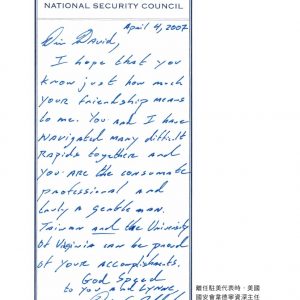 NATIONAL SECURITY COUNCIL
April 4, 2007
Dear David,
I hope that you
know just how much
your friendship means
to me. You and I have
navigated many difficult
rapids together and
you are the consumate
professional and
truly a gentleman.
Taiwan and the University
of Virginia can be proud
of your accomplishments.
God Speed
to you and Lynne,
離任駐美代表時，美國
國安會葉德寧資深主任